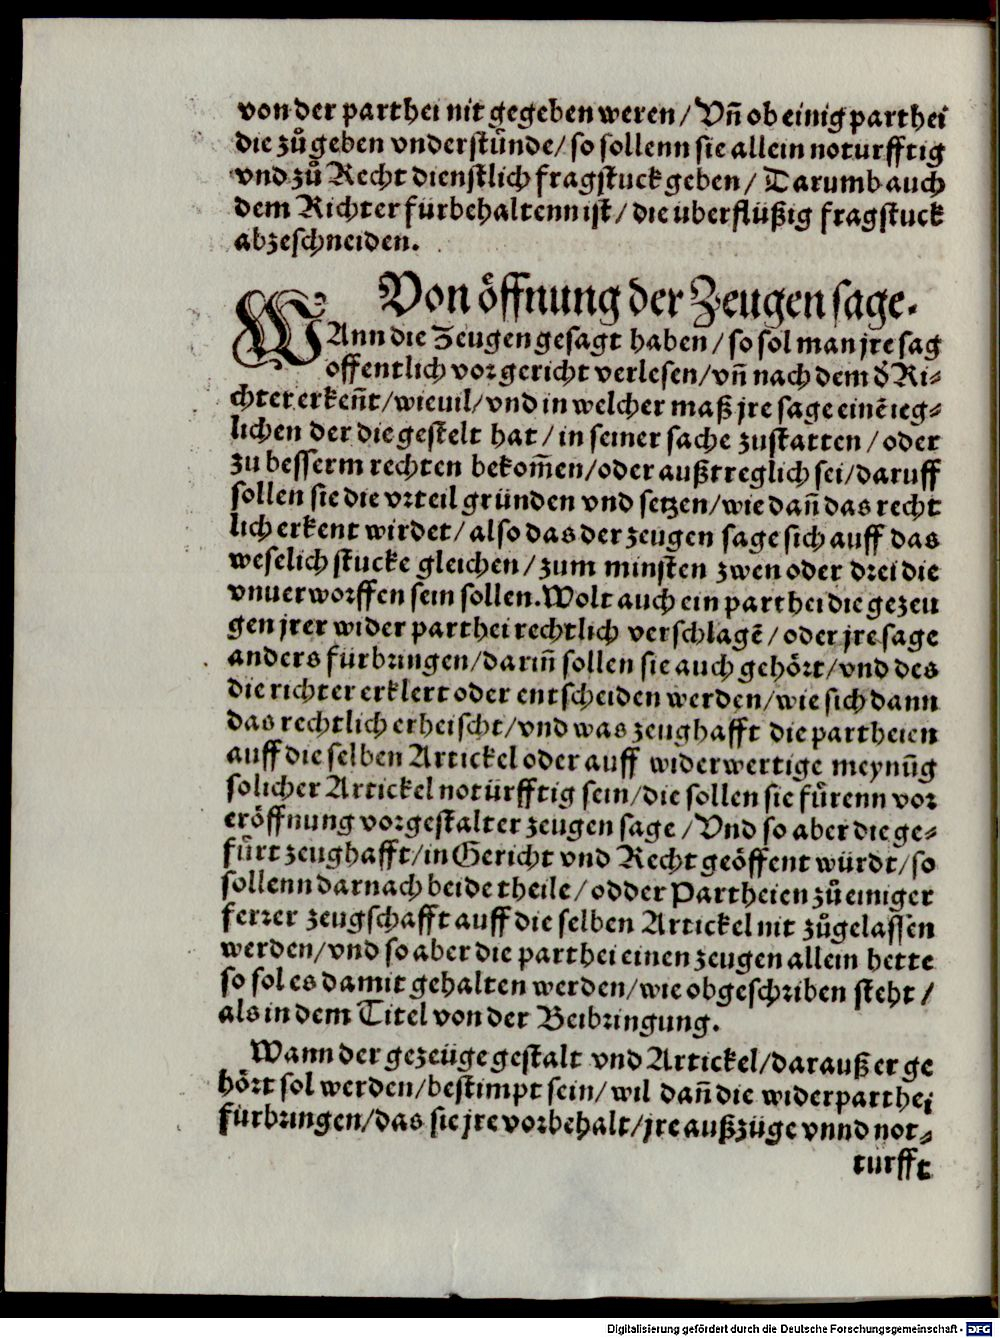 von der parthei nit gegeben weren / Vñ ob einig parthei
die zů geben vnderstünde / so sollenn sie allein noturfftig
vnd zů Recht dienstlich fragstuck geben / Darumb auch
dem Richter fürbehaltenn ist / die uberflüßig fragstuck
abzeschneiden.
Von öffnung der Zeugen sage.
WAnn die Zeugen gesagt haben / so sol man jre sag
offentlich vor gericht verlesen / vñ nach dem d̕ Ri⸗
chter erkeñt / wieuil / vnd in welcher maß jre sage einē ieg⸗
lichen der die gestelt hat / in seiner sache zustatten / oder
zu besserm rechten bekom̄en / oder außtreglich sei / daruff
sollen sie die vrteil gründen vnd setzen / wie dañ das recht
lich erkent wirdet / also das der zeugen sage sich auff das
weselich stucke gleichen / zum minsten zwen oder drei die
vnuerworffen sein sollen. Wolt auch ein parthei die gezeu
gen jrer wider parthei rechtlich verschlagē / oder jre sage
anders fürbringen / dariñ sollen sie auch gehört / vnd des
die richter erklert oder entscheiden werden / wie sich dann
das rechtlich erheischt / vnd was zeughafft die partheien
auff die selben Artickel oder auff widerwertige meynūg
solicher Artickel notürfftig sein / die sollen sie fürenn vor
eröffnung vorgestalter zeugen sage / Vnd so aber die ge⸗
fürt zeughafft / in Gericht vnd Recht geöffent würdt / so
sollenn darnach beide theile / odder Partheien zů einiger
ferrer zeugschafft auff die selben Artickel nit zůgelassen
werden / vnd so aber die parthei einen zeugen allein hette
so sol es damit gehalten werden / wie obgeschriben steht /
als in dem Titel von der Beibringung.
Wann der gezeüge gestalt vnd Artickel / darauß er ge
hört sol werden / bestimpt sein / wil dañ die widerparthei
fürbringen / das sie jre vorbehalt / jre außzüge vnnd not⸗
türfft
Digitalisierung gefördert durch die Deutsche Forschungsgemeinschaft - DFG